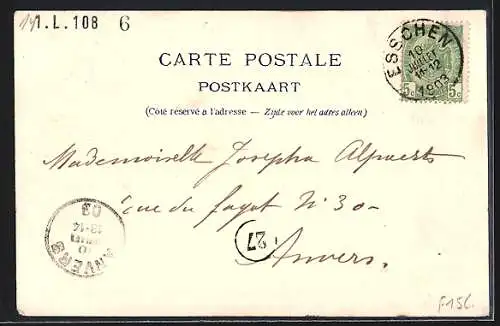 1.L.108 6
ESSCHEN
10
JUILLET
11-12
1903
5c 5c
CARTE POSTALE
POSTKAART
(Côté réservé à l'adresse — Zijde voor het adres alleen)
Mademoiselle Josepha Alpaerts
rue du fagot N° 30-
Anvers.
27
ANVERS
10
13-14
03
F15C.